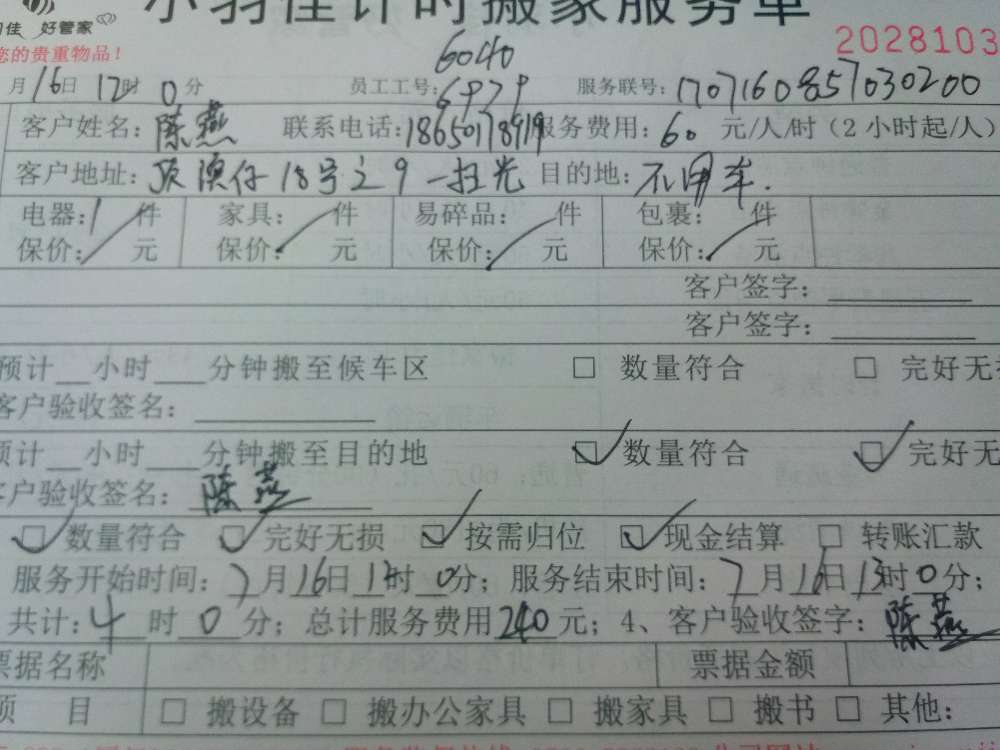 小羽佳计时搬家服务单
羽佳 好管家
您的贵重物品！
2028103
6040
月16日 12时 0分 员工工号：6979 服务联号：1707160857030200
客户姓名：陈燕 联系电话：18650178919 服务费用：60 元/人/时（2小时起/人）
客户地址：顶澳仔18号之9 一扫光 目的地：不用车.
电器：1 件 家具： 件 易碎品： 件 包裹： 件
保价： 元 保价： 元 保价： 元 保价： 元
客户签字：
客户签字：
预计__小时___分钟搬至候车区 □ 数量符合 □ 完好无
客户验收签名：
预计__小时___分钟搬至目的地 ☑ 数量符合 ☑ 完好无
客户验收签名：陈燕
☑ 数量符合 ☑ 完好无损 ☑ 按需归位 ☑ 现金结算 □ 转账汇款
服务开始时间：7月16日11时0分；服务结束时间：7月16日13时0分；
共计：4时0分；总计服务费用240元；4、客户验收签字：陈燕
票据名称 票据金额
项 目 □ 搬设备 □ 搬办公家具 □ 搬家具 □ 搬书 □ 其他：